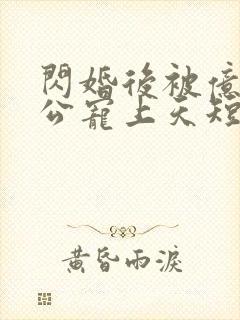 閃婚後被億
公寵上天短
黃昏雨淚